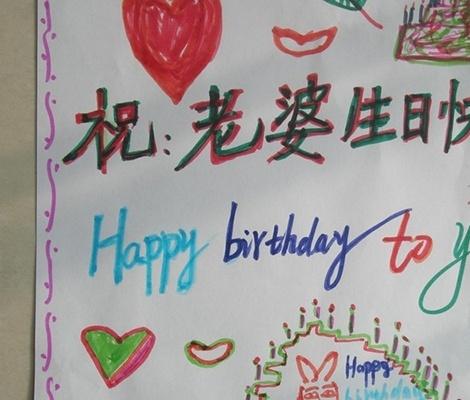 祝:老婆生日快
Happy birthday to y
Happy
birthday